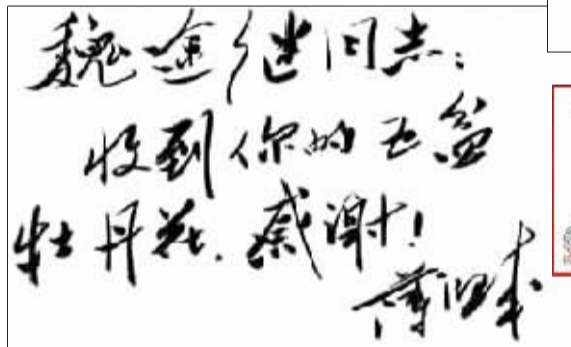 魏金继同志：
收到你的五盆
牡丹花，感谢！
薄熙来